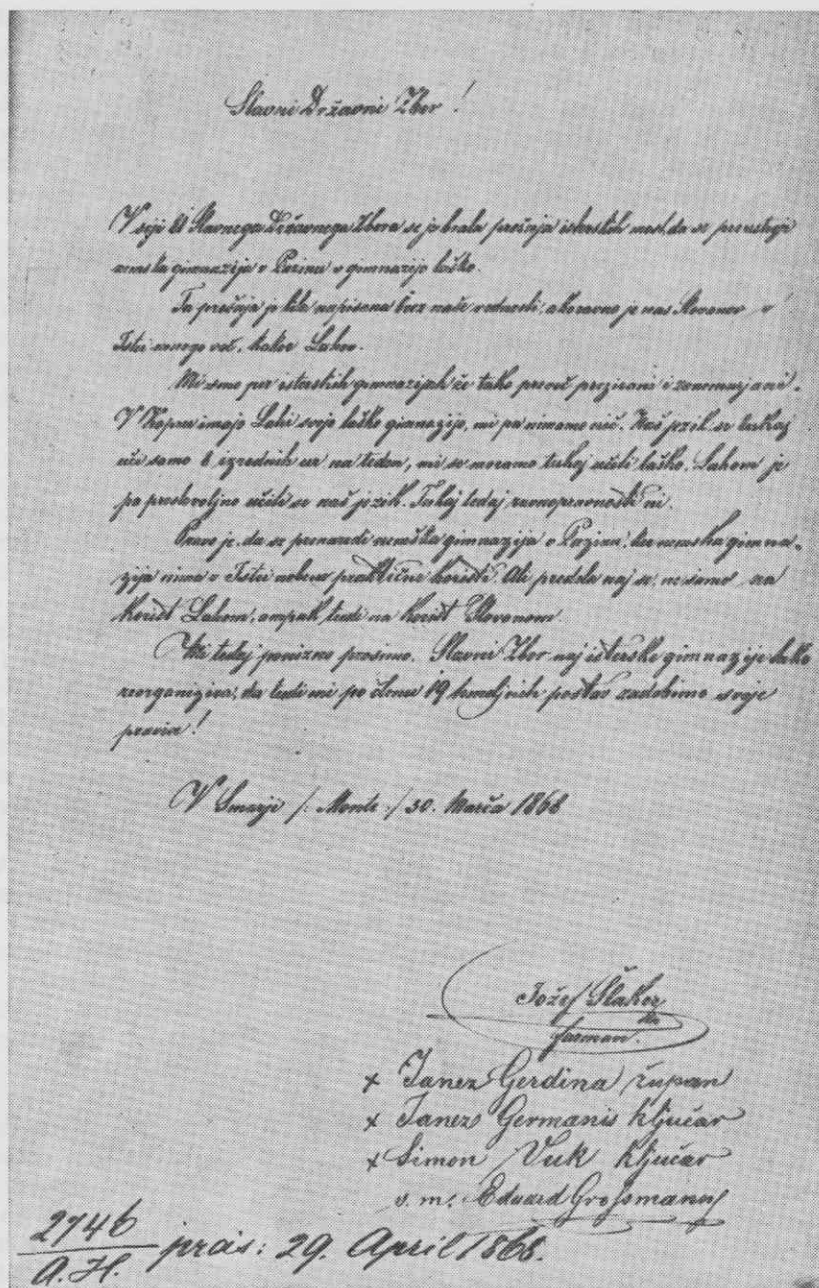 Slavni Državni Zbor!
V seji 61 Slavnega Državnega Zbora se je brala prošnja isterskih mest, da se preustroji
nemška gimnazija v Pazinu v gimnazijo laško.
Ta prošnja je bila napisana brez naše vednosti, akoravno je nas Slovanov v
Istri mnogo več, kakor Lahov.
Mi smo per isterskih gimnazijah že tako preveč prezirani i zanemarjani.
V Kopru imajo Lahi svojo laško gimnazijo, mi pa nimamo nič. Naš jezik se tukaj
uči samo 6 izrednih ur na teden, mi se moramo tukaj učiti laško. Lahom je
pa prostovoljno učiti se naš jezik. Tukaj tedaj ravnopravnosti ni.
Pravo je, da se prenaredi nemška gimnazija v Pazinu, ker nemška gimna-
zija nima v Istri nobene praktične koristi. Ali predela naj se, ne samo na
korist Lahom, ampak tudi na korist Slovanom.
Mi tedaj ponizno prosimo, Slavni Zbor naj isterske gimnazije tako
reorganizira, da tudi mi po členu 19 temeljnih postav zadobimo svoje
pravice!
V Smarji /: Monte :/ 30. Marča 1868
Jožef Šlaker
farman.
x Janez Gerdina župan
x Janez Germanis ključar
x Simon Vuk ključar
v. m. Eduard Großmann
2746
A.H.
präs: 29. April 1868.